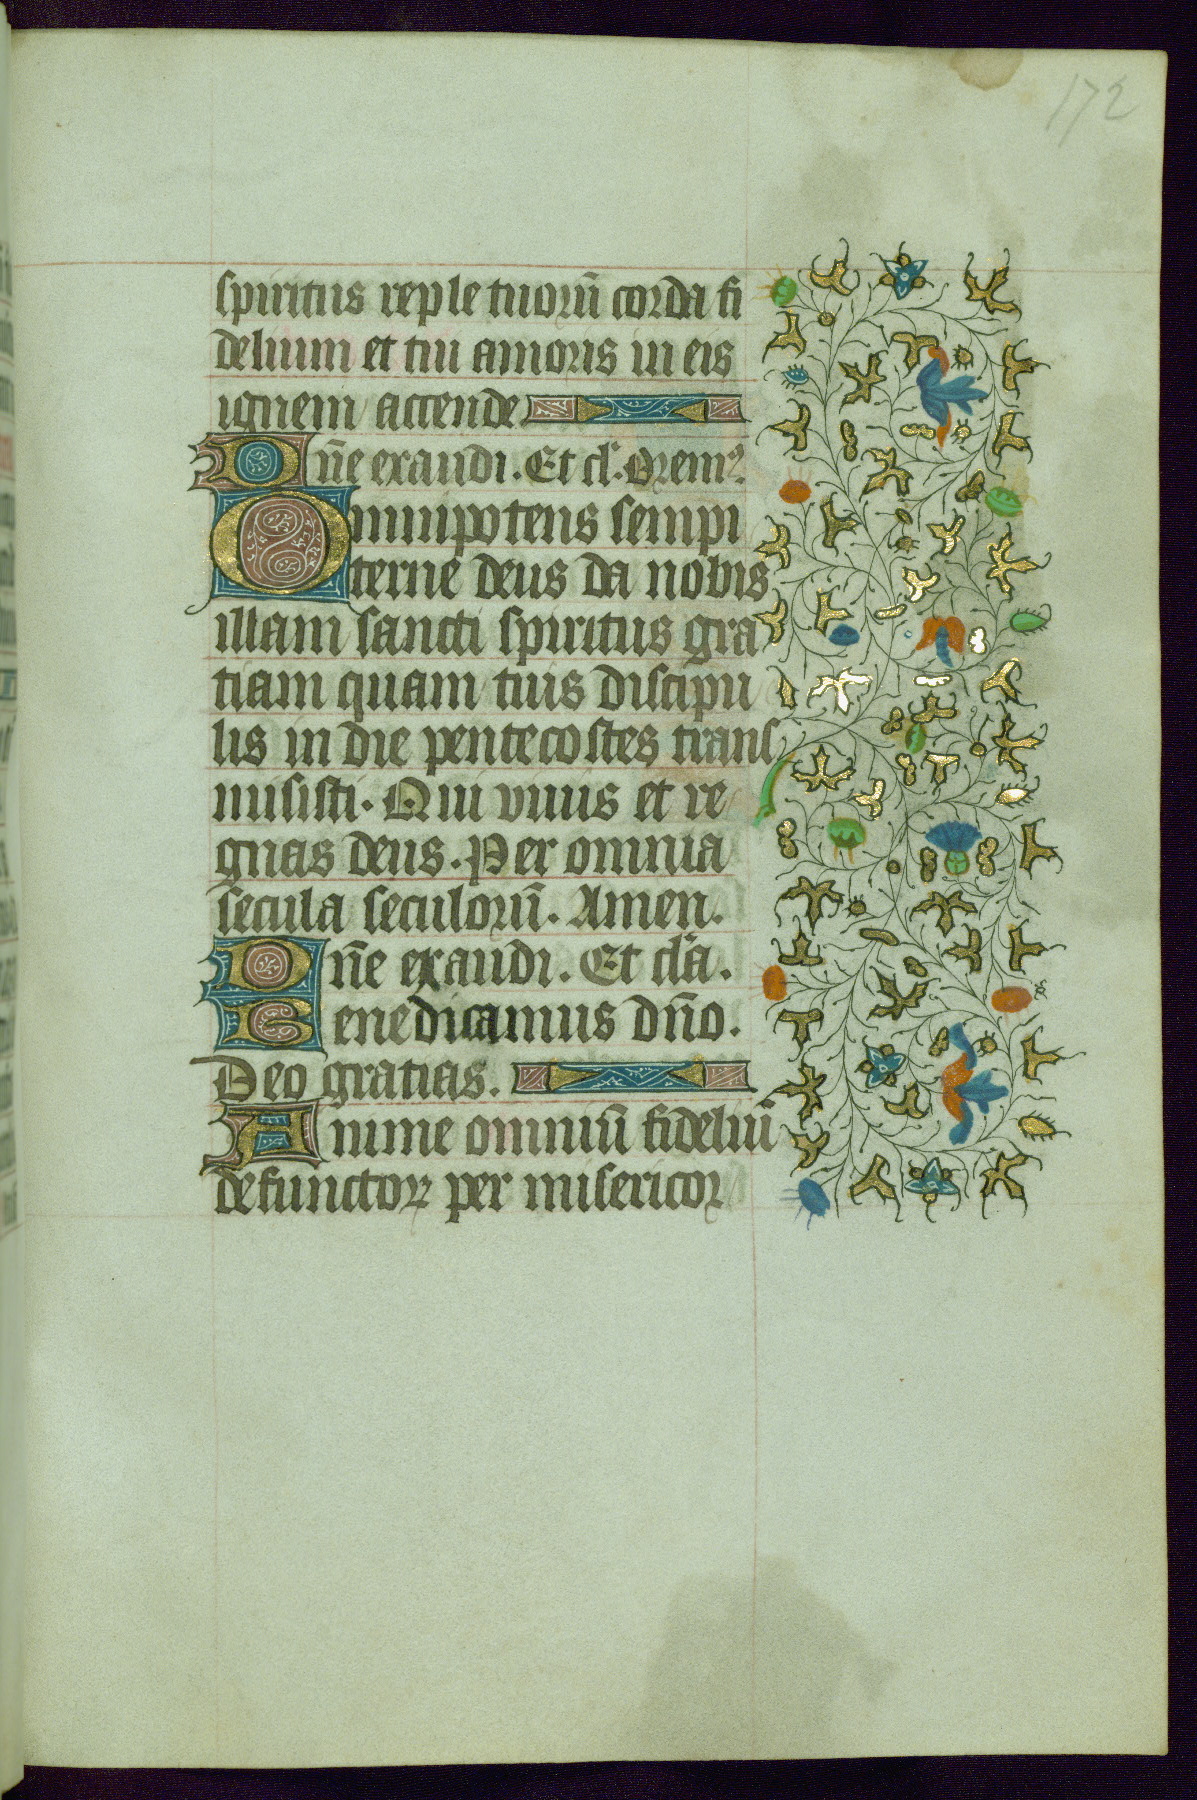 172
spiritus reple tuorū corda fi
delium et tui amoris in eis
ignem accende
Dñe exaudi. Et cl'. Oremꝰ
Omnipotens sempi
terne deus da nobis
illam sancti spiritus gra
tiam quam tuis discipu
lis in die pentecostes trans
misisti. Qui viuis et re
gnas deus. Per omnia
secula seculorū. Amen.
Dñe exaudi. Et cl'a.
Benedicamus dño.
Deo gratias.
Anime omniū fideliū
defunctoꝝ per misericor